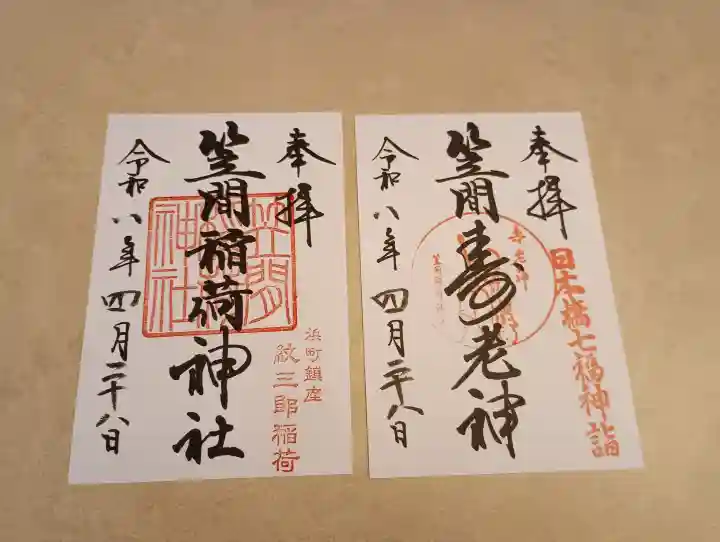 奉拝
笠間稲荷神社
令和八年四月二十八日
笠間稲荷神社
浜町鎮座
紋三郎稲荷
奉拝
笠間寿老神
令和八年四月二十八日
寿老神
日本橋七福神詣